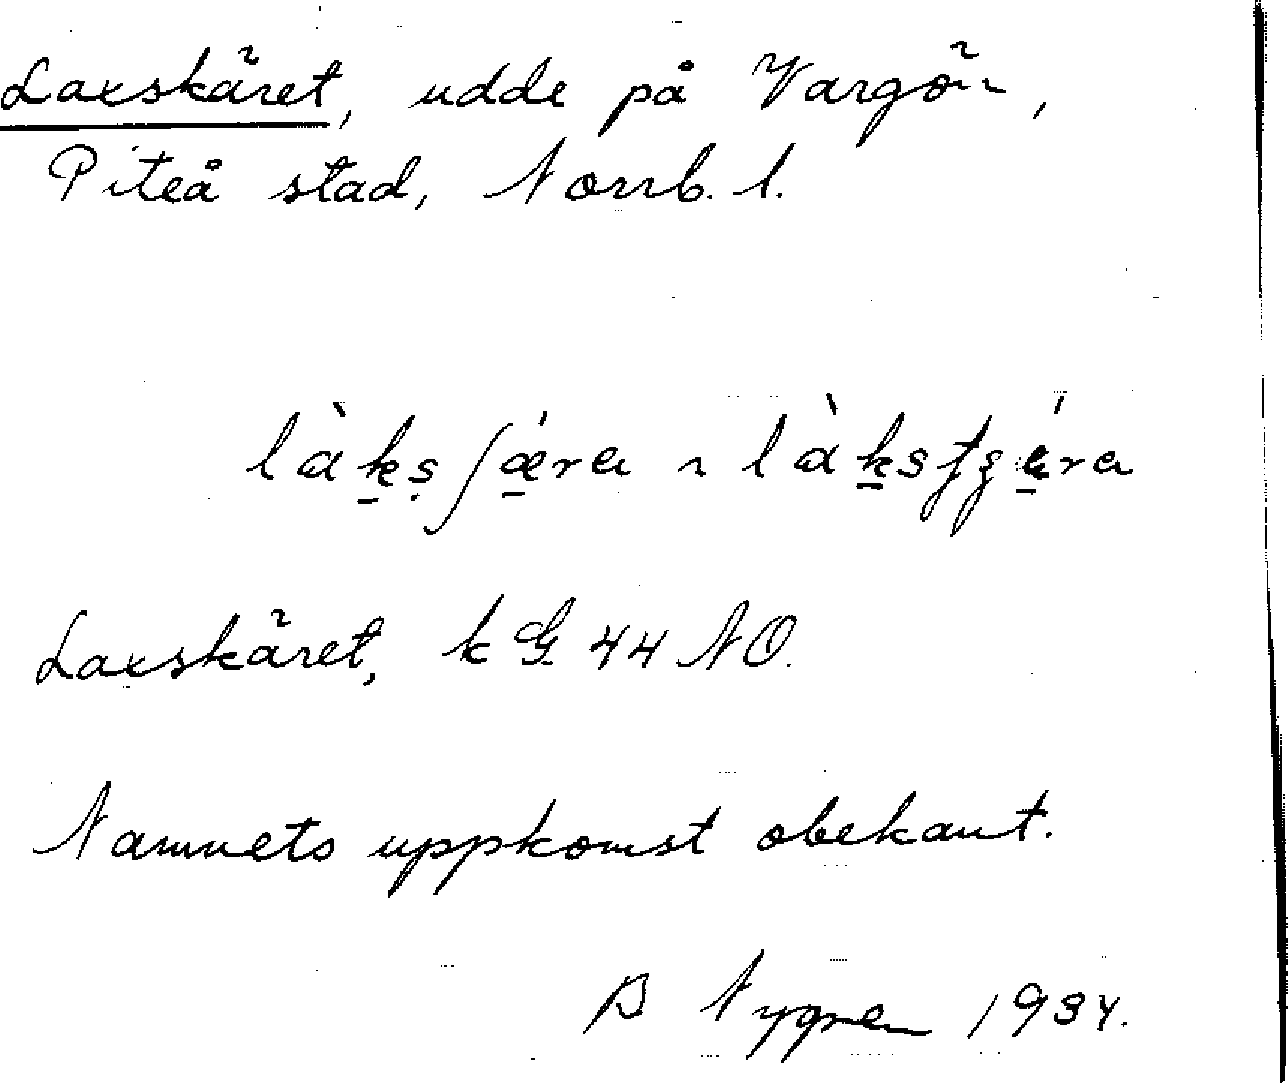 Laxskäret, udde på Vargön,
Piteå stad, Norrb. l.
làk̠ṣʃǽ̠ra ~ làk̠stʂǽ̠ra
Laxskäret, k G 44 NO.
Namnets uppkomst obekant.
B Nygren 1934.